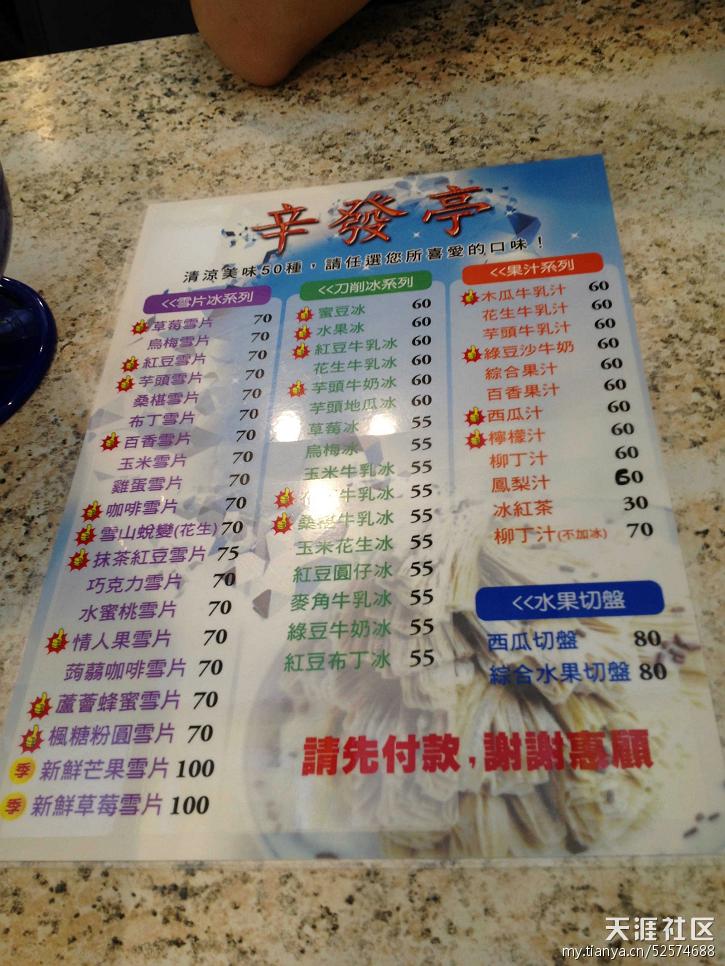 辛發亭
清涼美味50種，請任選您所喜愛的口味！
<<雪片冰系列
草莓雪片 70
烏梅雪片 70
紅豆雪片 70
芋頭雪片 70
桑椹雪片 70
布丁雪片 70
百香雪片 70
玉米雪片 70
雞蛋雪片 70
咖啡雪片 70
雪山蛻變(花生) 70
抹茶紅豆雪片 75
巧克力雪片 70
水蜜桃雪片 70
情人果雪片 70
蒟蒻咖啡雪片 70
蘆薈蜂蜜雪片 70
楓糖粉圓雪片 70
季 新鮮芒果雪片 100
季 新鮮草莓雪片 100
<<刀削冰系列
蜜豆冰 60
水果冰 60
紅豆牛乳冰 60
花生牛乳冰 60
芋頭牛奶冰 60
芋頭地瓜冰 60
草莓冰 55
烏梅冰 55
玉米牛乳冰 55
牛乳冰 55
桑椹牛乳冰 55
玉米花生冰 55
紅豆圓仔冰 55
麥角牛乳冰 55
綠豆牛奶冰 55
紅豆布丁冰 55
<<果汁系列
木瓜牛乳汁 60
花生牛乳汁 60
芋頭牛乳汁 60
綠豆沙牛奶 60
綜合果汁 60
百香果汁 60
西瓜汁 60
檸檬汁 60
柳丁汁 60
鳳梨汁 60
冰紅茶 30
柳丁汁(不加冰) 70
<<水果切盤
西瓜切盤 80
綜合水果切盤 80
請先付款，謝謝惠顧
天涯社区
my.tianya.cn/52574688